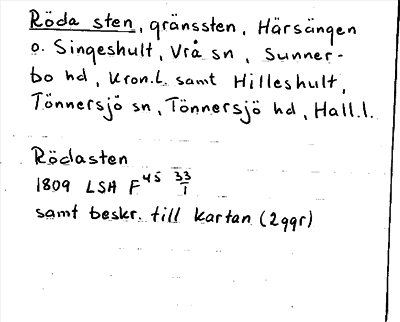 Röda sten, gränssten, Härsängen
o. Singeshult, Vrå sn, Sunner-
bo hd, Kron.l. samt Hilleshult,
Tönnersjö sn, Tönnersjö hd, Hall.l.
Rödasten
1809 LSA F45 33/1
samt beskr. till kartan (2ggr)